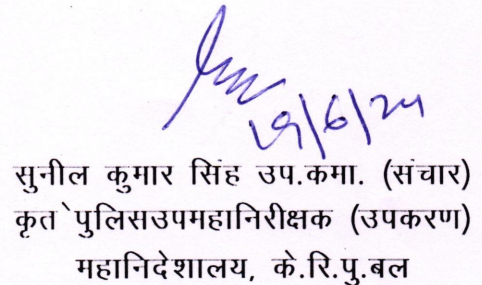 19/6/24
सुनील कुमार सिंह उप.कमा. (संचार)
कृते पुलिसउपमहानिरीक्षक (उपकरण)
महानिदेशालय, के.रि.पु.बल